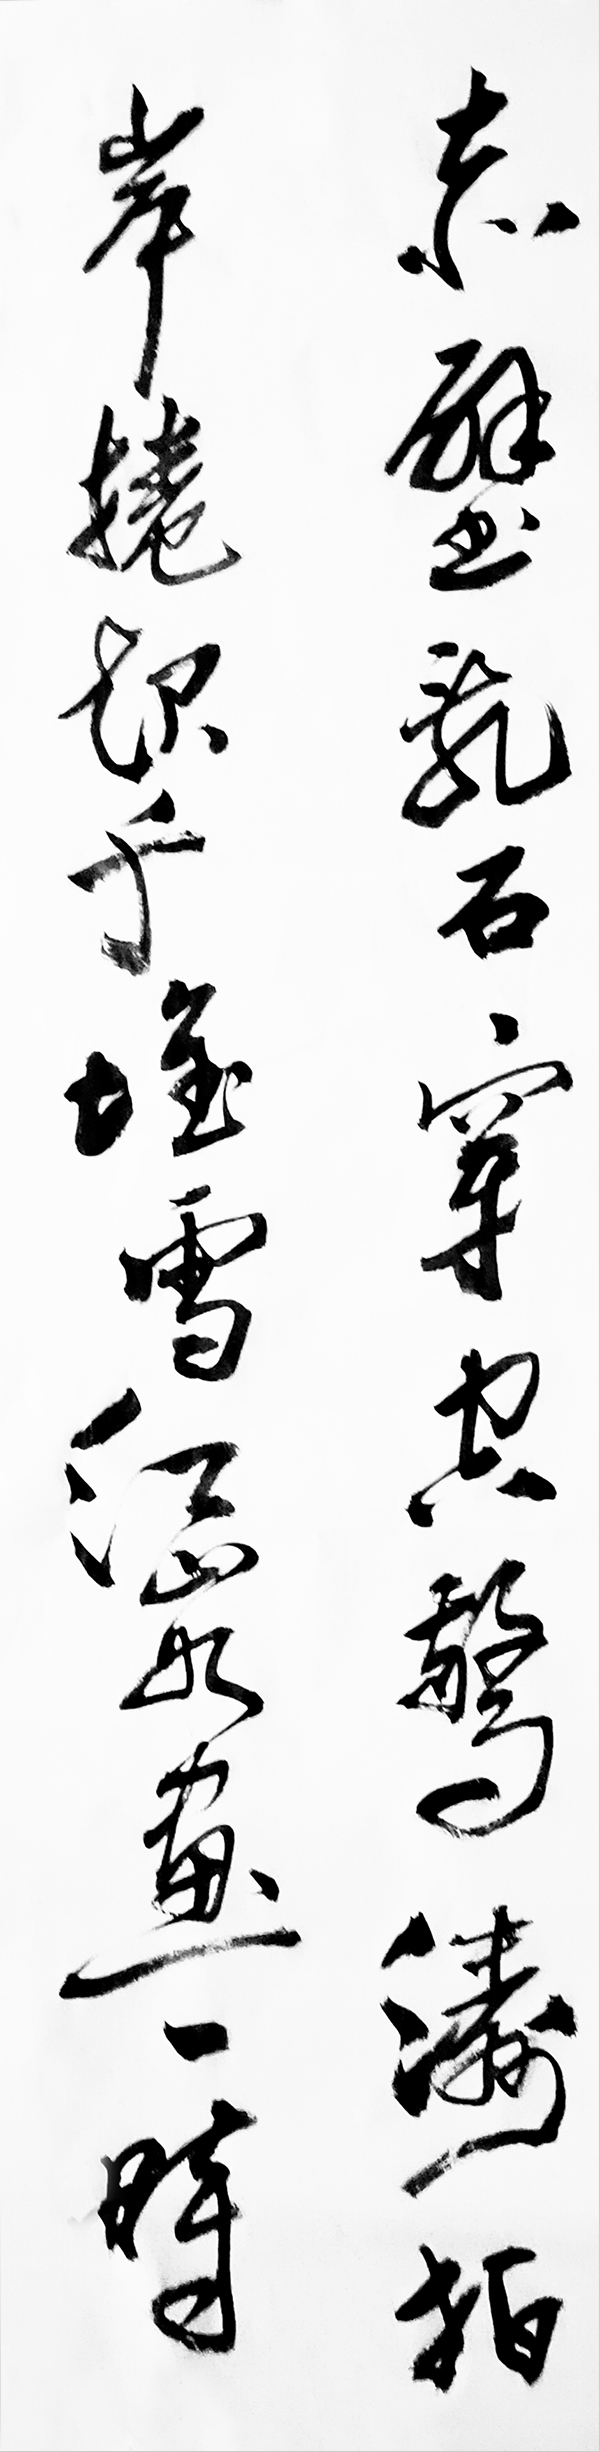 赤壁亂石穿空驚濤拍
岸捲起千堆雪江山如畫一時